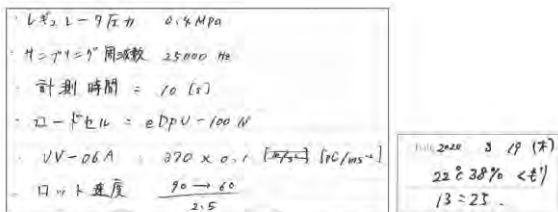 ・レギュレータ圧力 0.4MPa
・サンプリング周波数 25000 Hz
・計測時間 = 10 [s]
・ロードセル = eDPU-100N
・VV-06A : 370 × 0.1 [pC/ms⁻²]
・ロット速度 90→60
2.5
2020 3 19 (木)
22℃ 38% くもり
13:25.